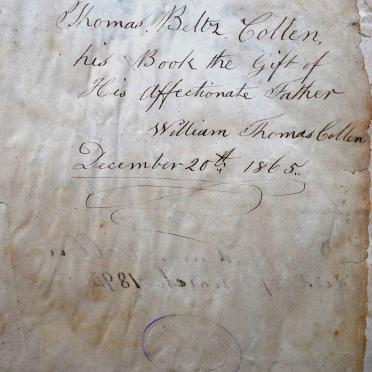 Thomas Beltz Collen,
his Book the Gift of
His Affectionate Father
William Thomas Collen
December 20th 1865.